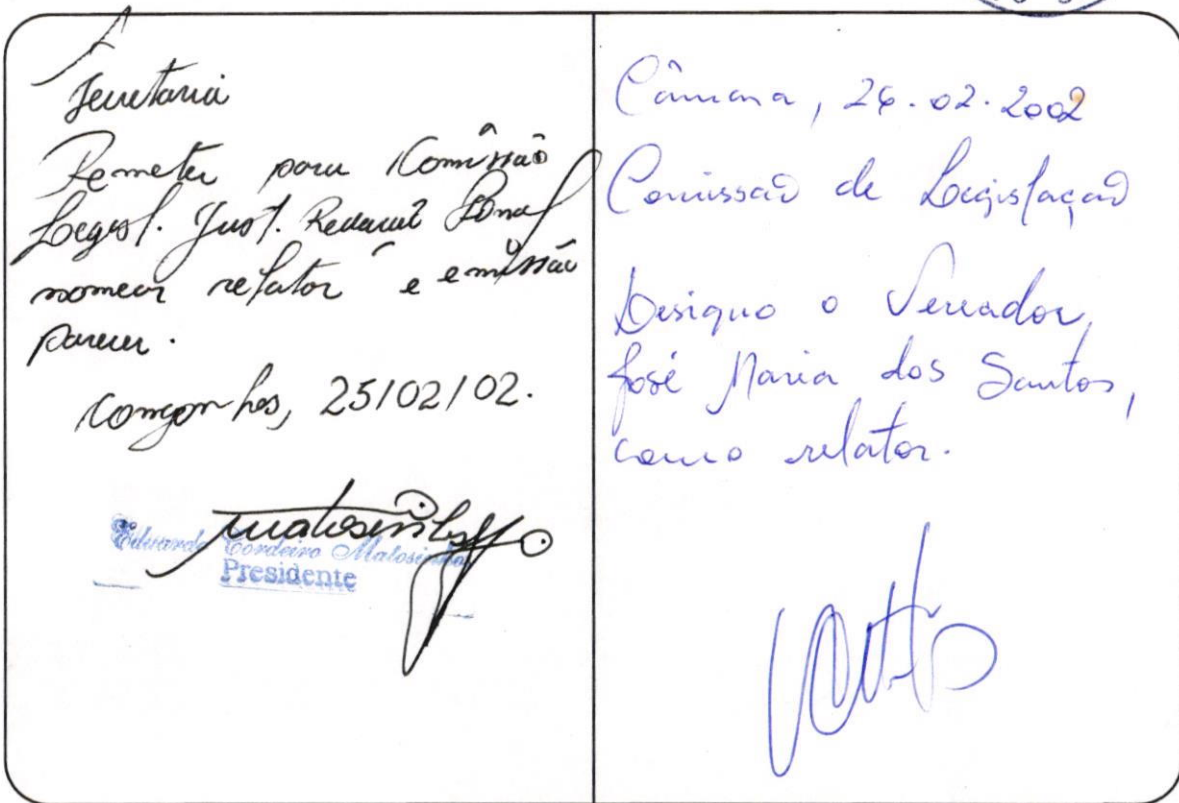 À
Secretaria
Remeter para Comissão
Legisl. Just. Redação Final
nomear relator e emissão
parecer.
Congonhas, 25/02/02.
Eduardo Cordeiro Matosinhos
Presidente
Câmara, 26.02.2002
Comissão de Legislação
Designo o Vereador,
José Maria dos Santos,
como relator.